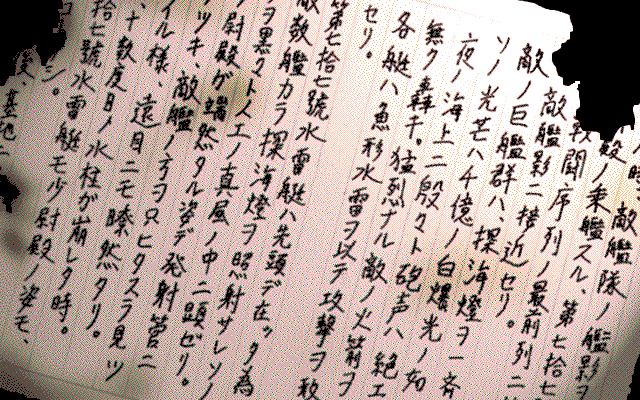 ノ時、敵艦隊ノ艦影ヲ
殿ノ乗艦スル、第七拾七
戦闘序列ノ最前列ニ
敵艦影ニ接近セリ。
敵ノ巨艦群ハ、探海燈ヲ一斉
ソノ光芒ハ千億ノ白爆光ノ如
夜ノ海上ニ殷々ト砲声ハ絶エ
無ク轟キ。猛烈ナル敵ノ火箭ヲ
各艇ハ魚形水雷ヲ以テ攻撃ヲ敢
セリ。
第七拾七號水雷艇ハ先頭デ在ッタ為
敵数艦カラ探海燈ヲ照射サレソノ
ヲ黒々トスエノ真風ノ中ニ頭ゼリ。
尉殿ガ端然タル姿デ発射管ニ
ツキ、敵艦ノ方ヲ只ヒタスラ見ツ
イル様、遠目ニモ瞭然タリ。
十数度目ノ水柱ガ崩レタ時。
拾七號水雷艇モ少尉殿ノ姿モ、
シ。
基地ニ